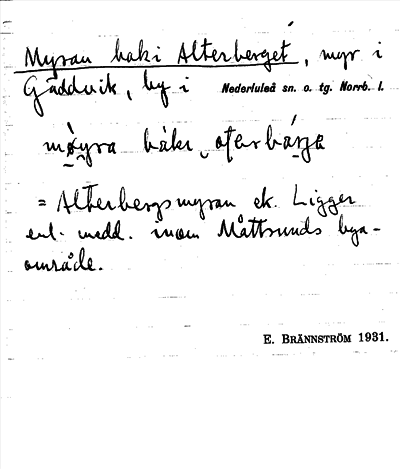 Myran baki Alterberget, myr i
Gäddvik, by i Nederluleå sn. o. tg. Norrb. l.
møyra båkı ɑʈerbárga
= Alterbergsmyran ek. Ligger
enl. medd. inom Måttsunds bya-
område.
E. BRÄNNSTRÖM 1931.